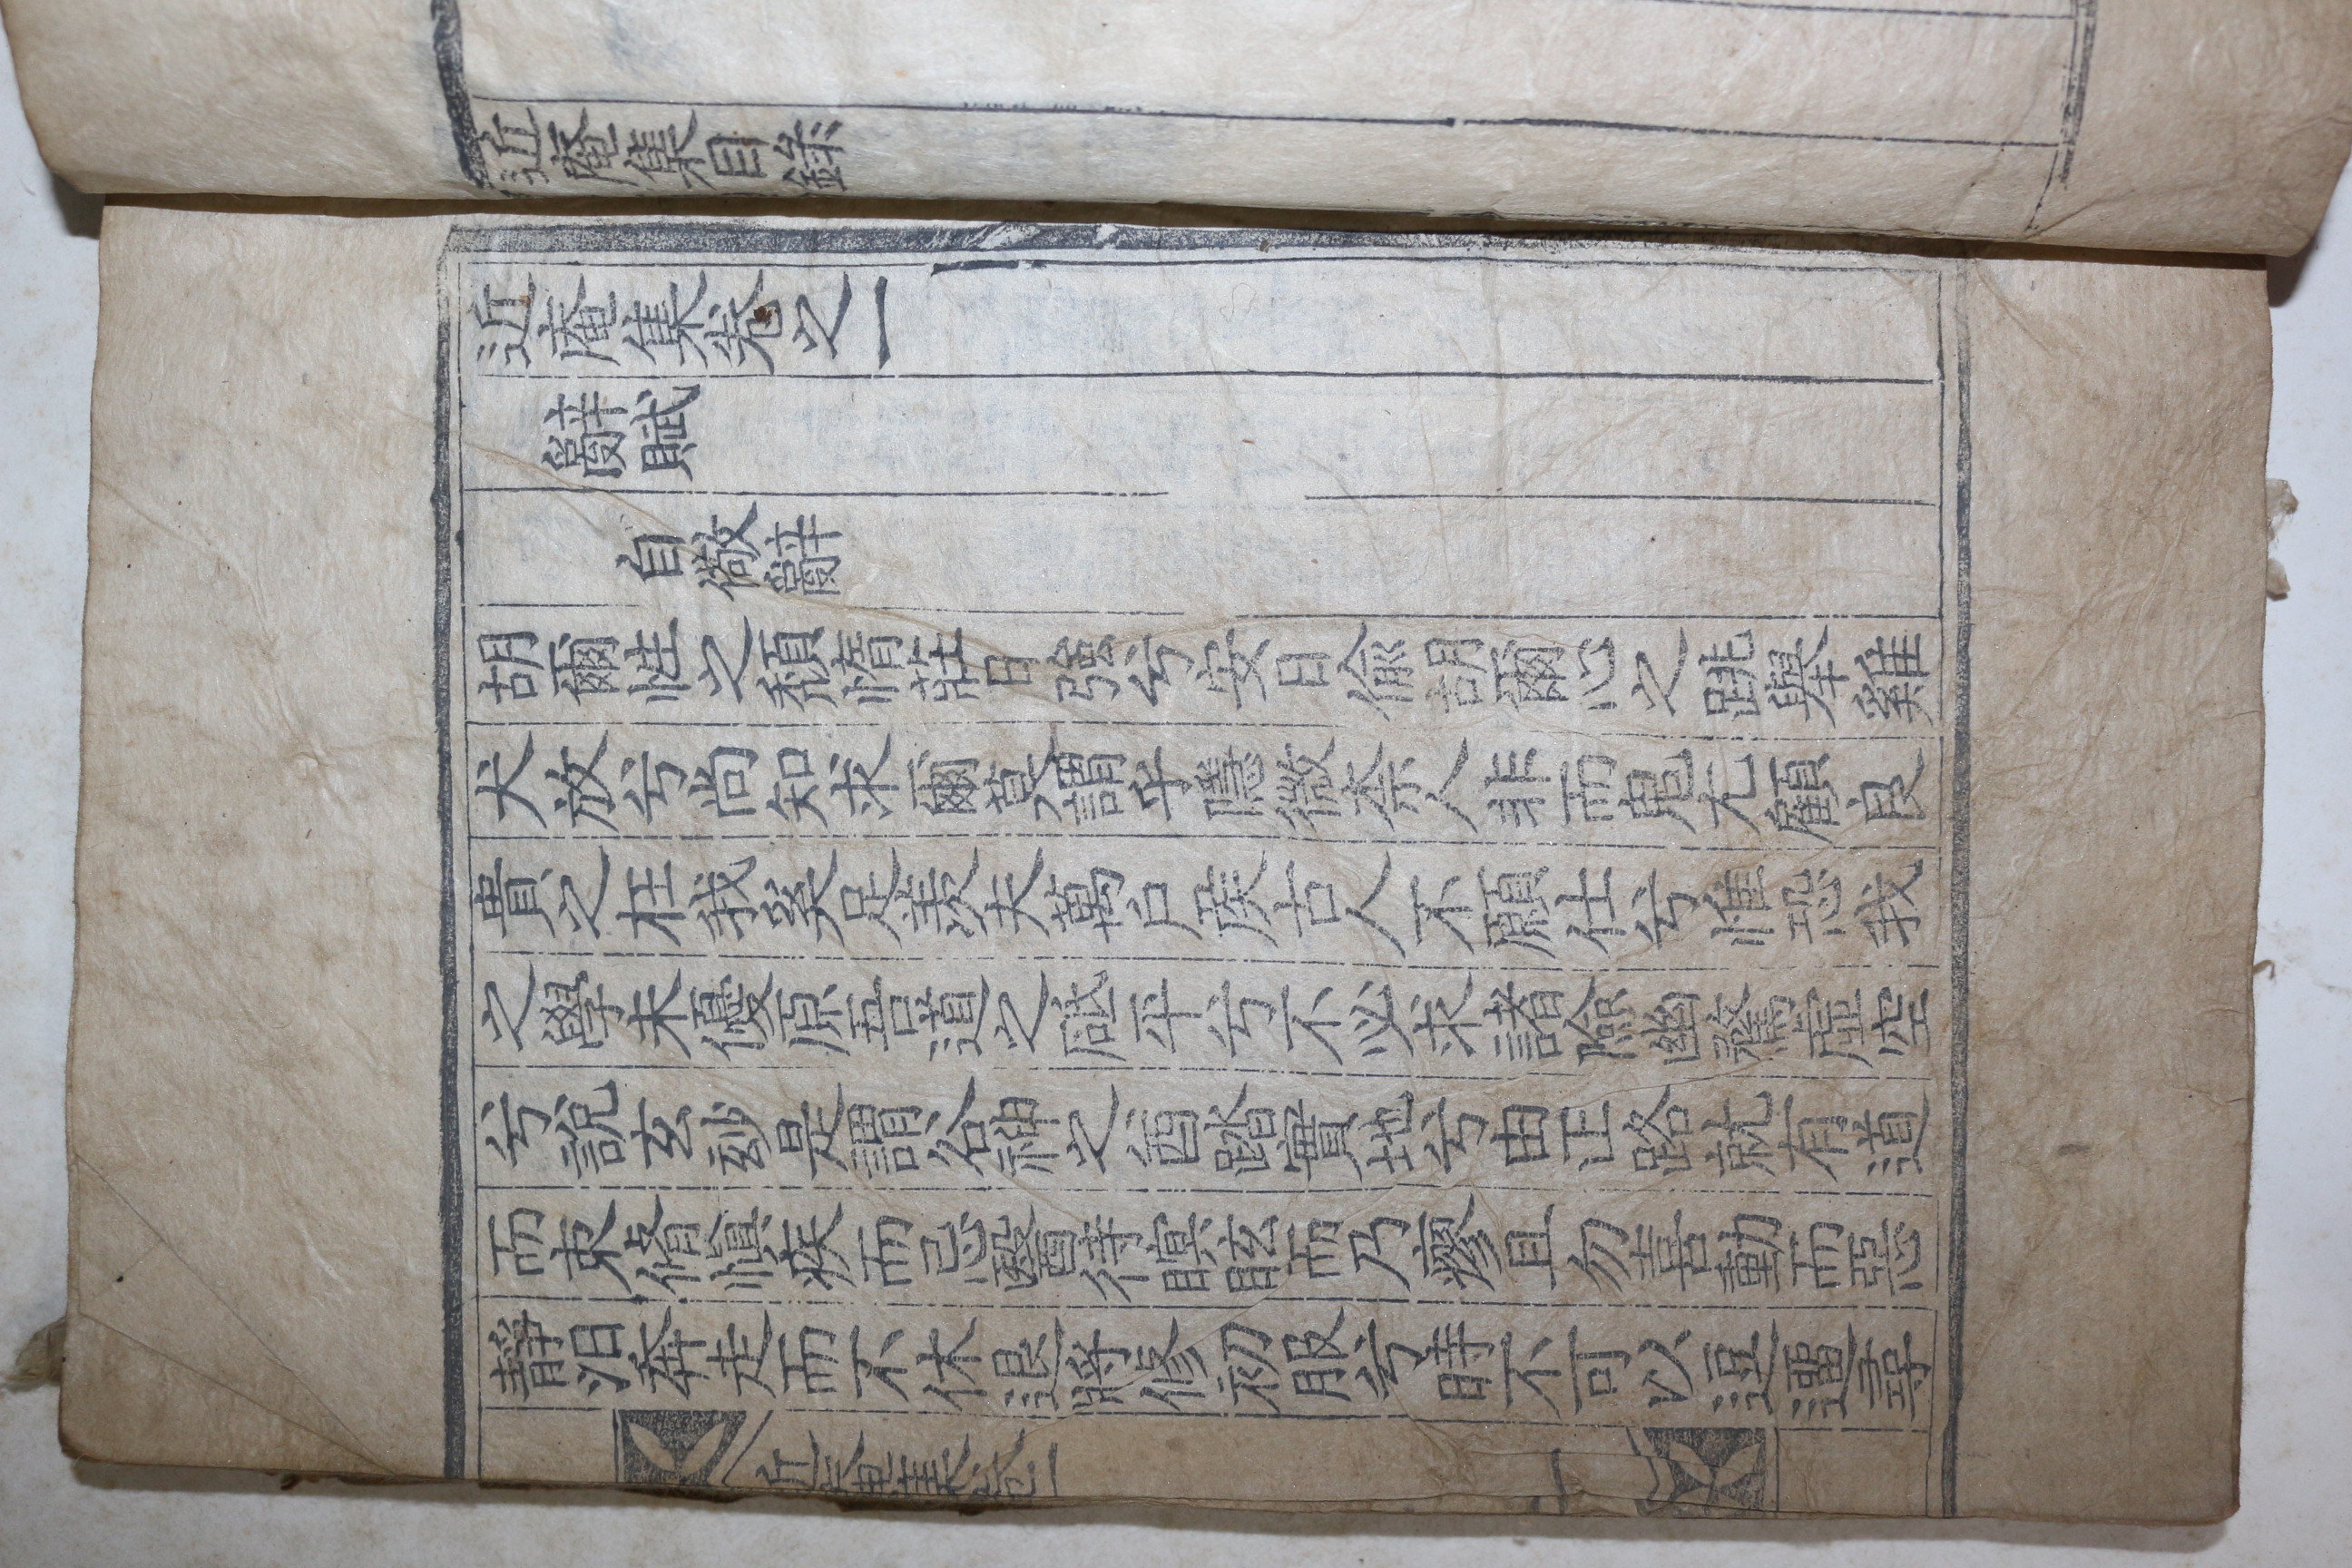 近庵集目錄
近庵集卷之一
辭賦
自儆辭
胡爾性之頹惰莊日強兮安日偸胡爾心之跳舉雞
犬放兮尚知求爾莫謂乎隱微柰人非而鬼尤顧良
貴之在我奚足羨夫萬戶侯古人不願仕兮惟恐我
之學未優原吾道之砥平兮不必求諸險幽騖虛空
兮說玄玅是謂谷神之酋踏實地兮由正路就有道
而束脩愼疾而忌醫待瞑眩而乃瘳且勿喜動而惡
靜汨奔走而不休退將修初服兮時不可以逗遛尋
近庵集卷一
一